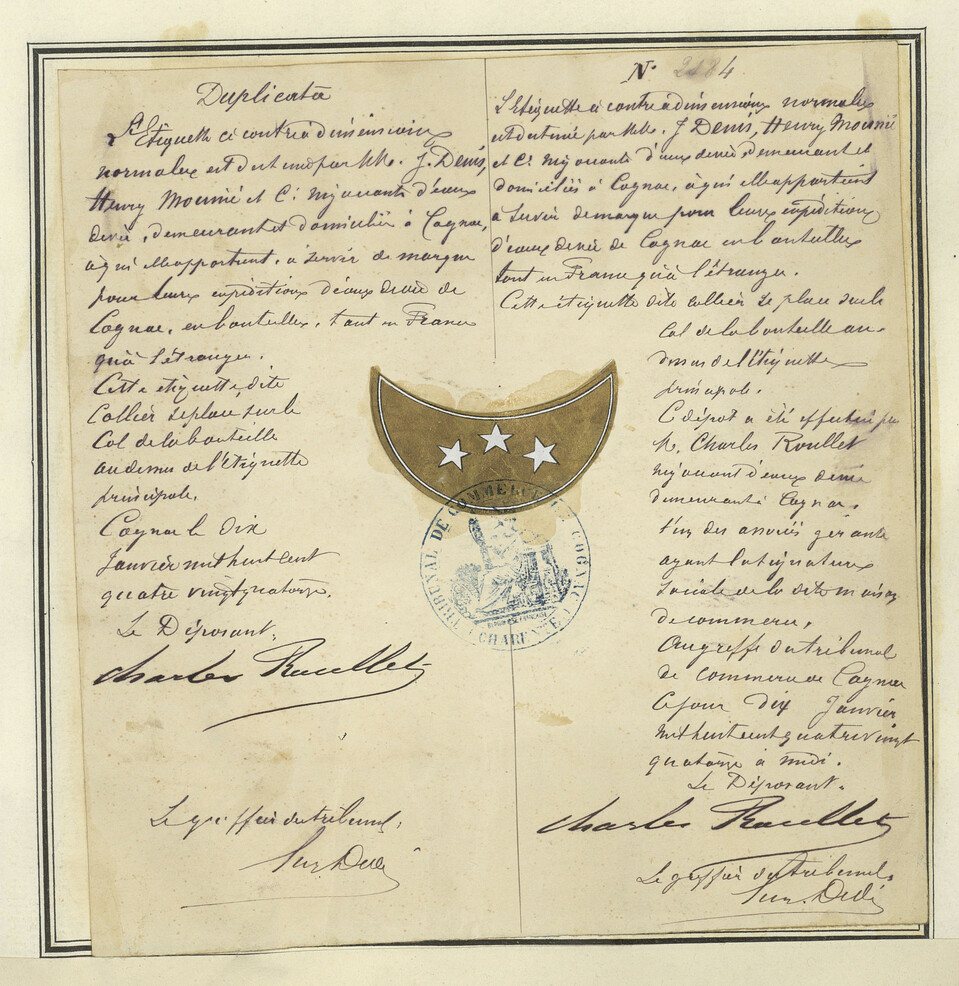 Duplicata
L'Etiquette ci contre à dimensions
normales est destinée par MM. J. Denis,
Henry Mounié et Cⁱᵉ Négociants d'eaux
de vie, demeurant et domiciliés à Cognac,
à qui elle appartient, à servir de marque
pour leurs expéditions d'eaux de vie de
Cognac, en bouteilles, tant en France
qu'à l'étranger.
Cette étiquette dite
Collier se place sur le
Col de la bouteille
au dessus de l'étiquette
principale.
Cognac le dix
Janvier mil huit cent
quatre vingt quatorze.
Le Déposant,
Charles Roullet
Le greffier du tribunal,
N° 2184
L'Etiquette ci contre à dimensions normales
est destinée par MM. J. Denis, Henry Mounié
et Cⁱᵉ Négociants d'eaux de vie, demeurant et
domiciliés à Cognac, à qui elle appartient
à servir de marque pour leurs expéditions
d'eaux de vie de Cognac en bouteilles
tant en France qu'à l'étranger.
Cette étiquette dite collier se place sur le
Col de la bouteille au-
dessus de l'étiquette
principale.
Ce dépôt a été effectué par
M. Charles Roullet
Négociant d'eaux de vie
demeurant à Cognac,
l'un des associés gérants
ayant la signature
sociale de la dite maison
de commerce,
Au greffe du tribunal
de commerce de Cognac
Ce jour dix Janvier
mil huit cent quatre vingt
quatorze à midi.
Le Déposant.
Charles Roullet
Le greffier du tribunal.
TRIBUNAL DE COMMERCE DE COGNAC
CHARENTE